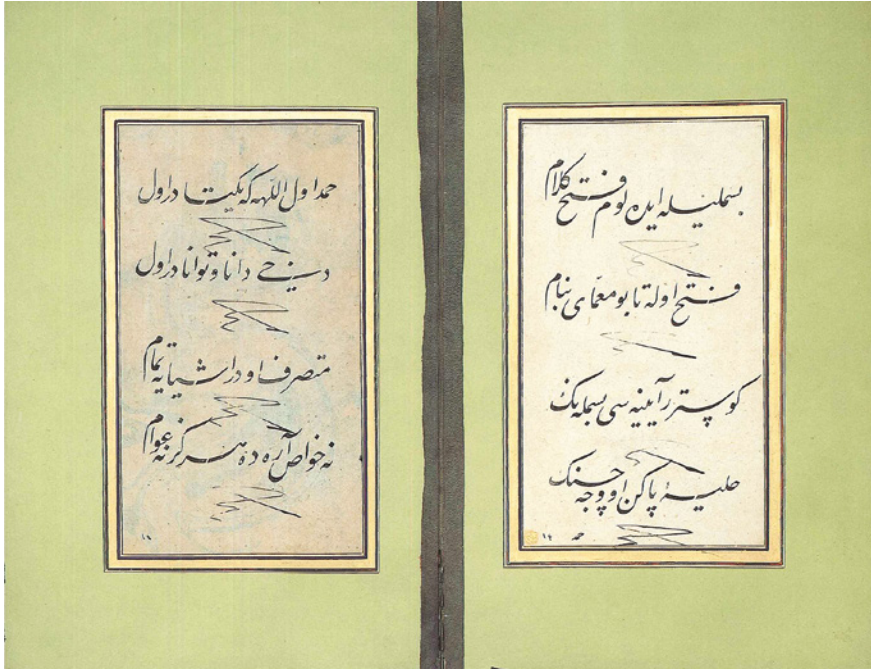 بسملیله ایده لوم فتح کلام
فتح اوله تا بو معمای بنام
کوسترر آیینه سی بسمله نک
حلیهٔ پاکن او وجه حسنک
حمد اول اللهه که یکتا در اول
حی دانا و توانا در اول
متصرف اودر اشیایه تمام
نه خواص آره ده هرکز نه عوام